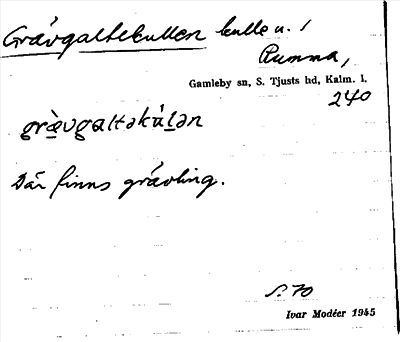 Grävgaltekullen kulle u. /
Rumma,
Gamleby sn, S. Tjusts hd, Kalm. l.
240
græ̀vgaltəkùlən
Där finns grävling.
S. 70
Ivar Modéer 1945